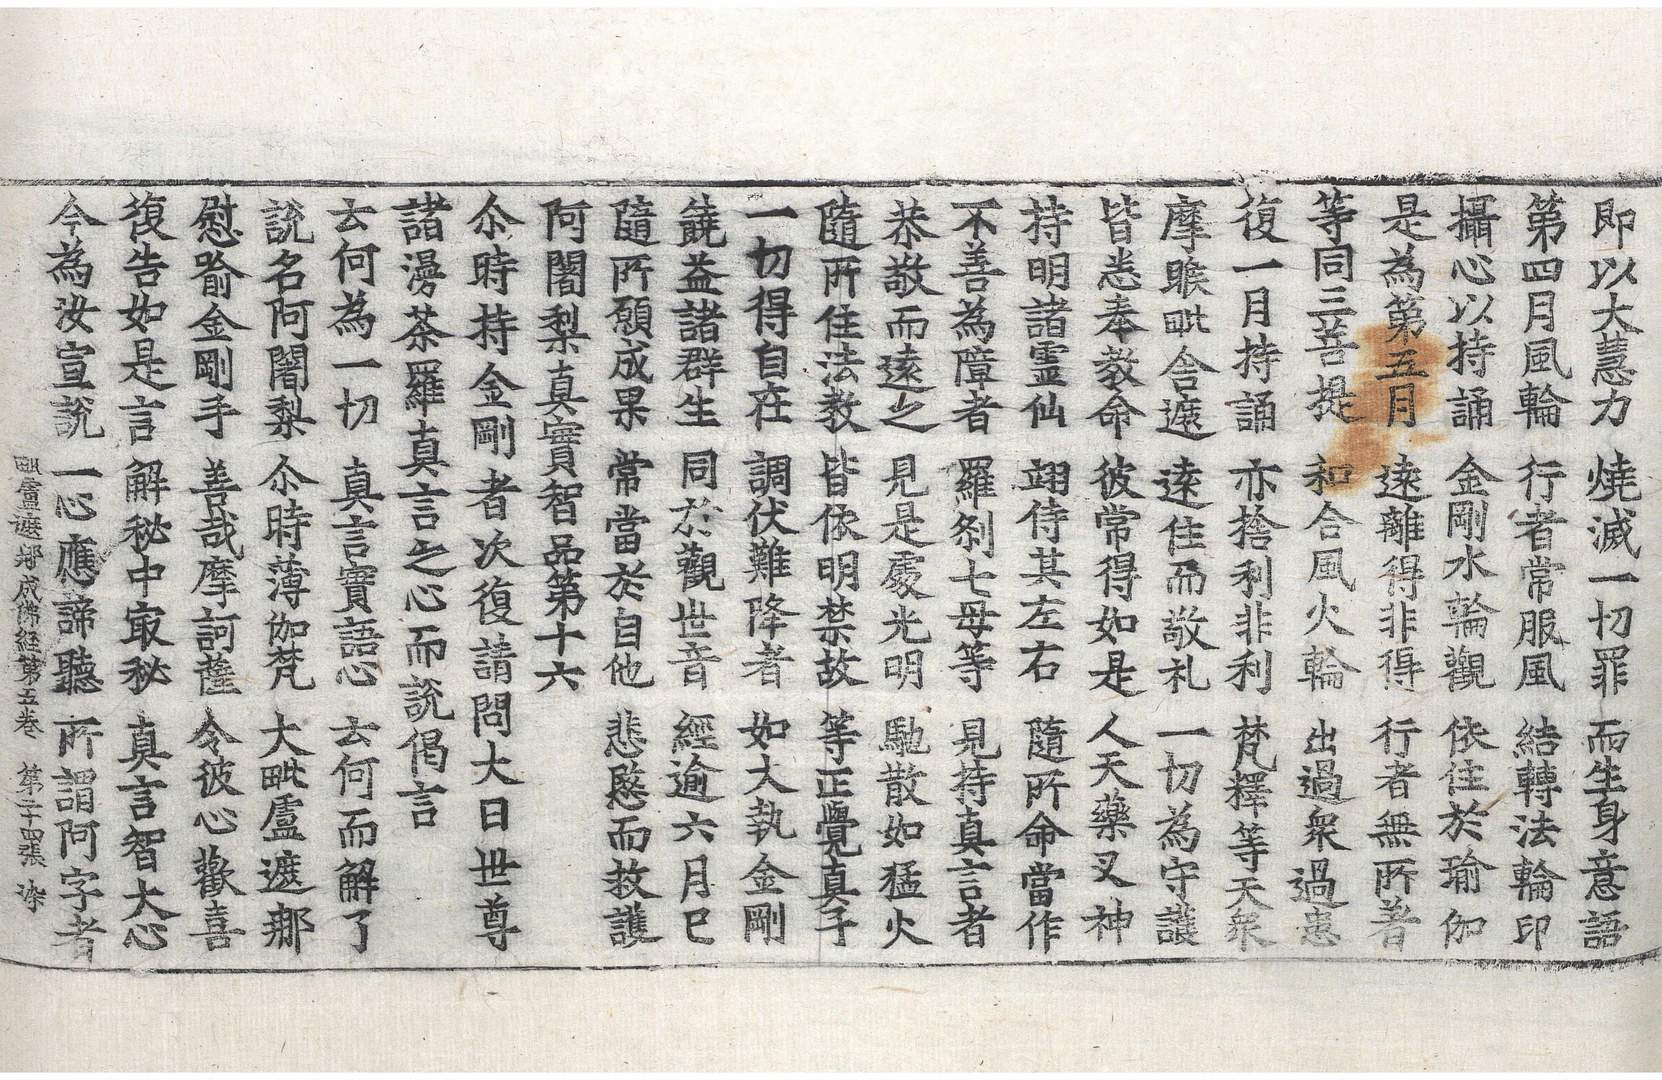 即以大慧力　燒滅一切罪　而生身意語
第四月風輪　行者常服風　結轉法輪印
攝心以持誦　金剛水輪觀　依住於瑜伽
是為第五月　遠離得非得　行者無所著
等同三菩提　和合風火輪　出過衆過患
復一月持誦　亦捨利非利　梵釋等天衆
摩睺毗舍遮　遠住而敬礼　一切為守護
皆悉奉教命　彼常得如是　人天藥叉神
持明諸霊仙　翊侍其左右　隨所命當作
不善為障者　羅剎七母等　見持真言者
恭敬而遠之　見是處光明　馳散如猛火
隨所住法教　皆依明禁故　等正覺真子
一切得自在　調伏難降者　如大執金剛
饒益諸群生　同於觀世音　經逾六月已
隨所願成果　常當於自他　悲愍而救護
阿闍梨真實智品第十六
尒時持金剛者次復請問大日世尊
諸漫荼羅真言之心而說偈言
云何為一切　真言實語心　云何而解了
說名阿闍梨　尒時薄伽梵　大毗盧遮那
慰喻金剛手　善哉摩訶薩　令彼心歡喜
復告如是言　解秘中㝡秘　真言智大心
今為汝宣說　一心應諦聽　所謂阿字者
毗盧遮那成佛經第五卷　第二十四張　染